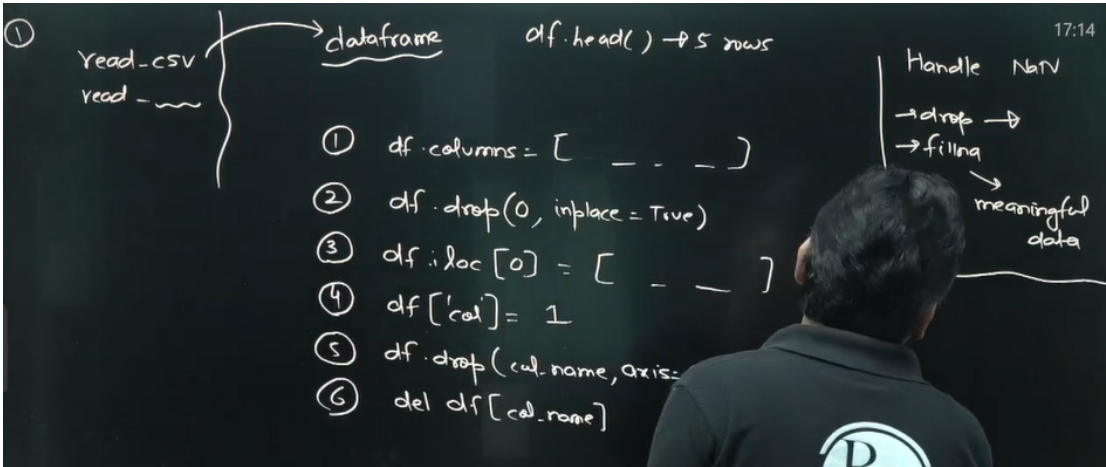 ①
read_csv
read _
dataframe
df.head() → 5 rows
17:14
Handle NaN
→ drop →
→ fillna
meaningful
data
① df.columns = [ _ _ _ ]
② df.drop(0, inplace = True)
③ df.iloc[0] = [ _ _ ]
④ df['col'] = 1
⑤ df.drop(col_name, axis=
⑥ del df[col_name]
P